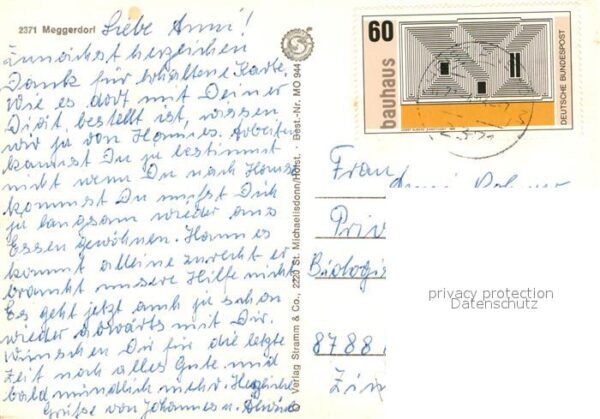 2371 Meggerdorf
Liebe Anni!
Zunächst herzlichen
Dank für erhaltene Karte.
Wie es dort mit Deiner
Diät bestellt ist, wissen
wir ja von Hannes. Arbeiten
kannst Du ja bestimmt
nicht wenn Du nach Hause
kommst Du mußt Dich
ja langsam wieder ans
Essen gewöhnen. Hannes
kommt alleine zurecht er
braucht unsere Hilfe nicht
Es geht jetzt auch ja schon
wieder abwärts mit Dir.
Wünschen Dir für die letzte
Zeit noch alles Gute und
bald mündlich mehr. Herzliche
Grüße von Johannes u.
© Verlag Stramm & Co., 2220 St. Michaelisdonn/Holst. · Best.-Nr. MO 944
60
bauhaus
DEUTSCHE BUNDESPOST
Frau
Priv
Biologis
8788
Zim
privacy protection
Datenschutz